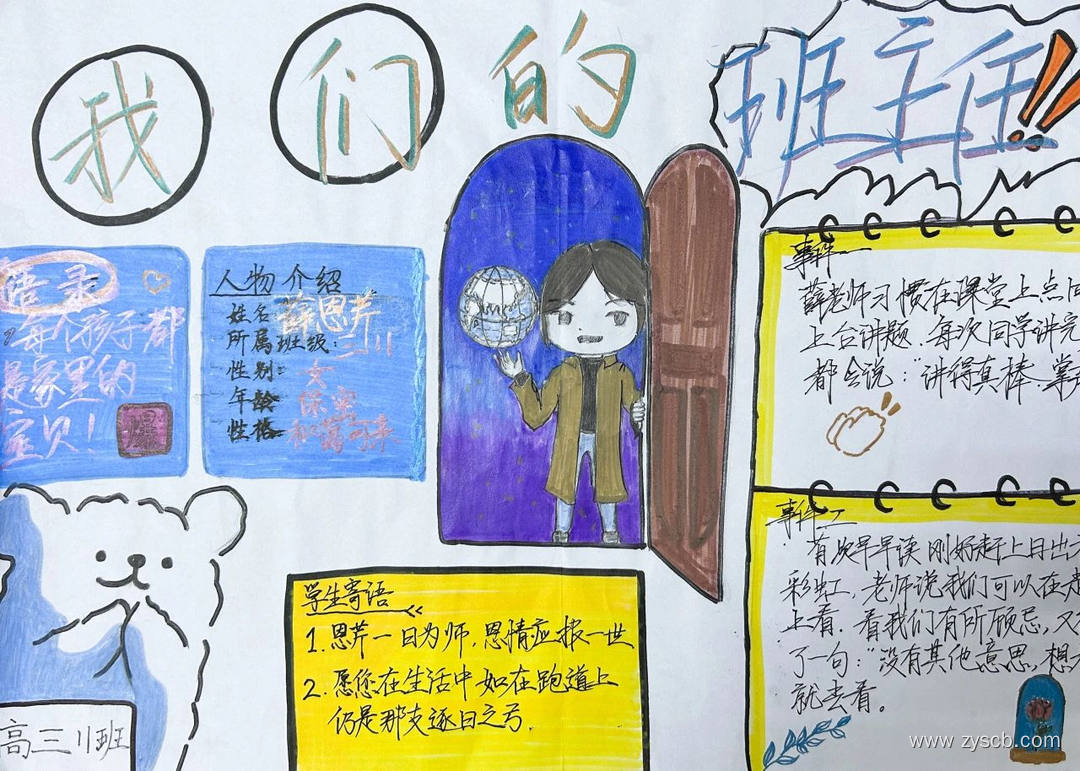 我们的
班主任!!
语录
每个孩子都
是家里的
宝贝!
人物介绍
姓名: 薛恩芹
所属班级: 三11
性别: 女
年龄 保密
性格 和蔼可亲
事件一
薛老师习惯在课堂上点同
上台讲题.每次同学讲完
都会说:“讲得真棒.掌
事件二
有次早早读刚好赶上日出
彩虹,老师说我们可以在走
上看.看我们有所顾忌,又
了一句:“没有其他意思,想
就去看。
学生寄语
1.恩芹一日为师,恩情应报一世
2.愿您在生活中如在跑道上
仍是那支逐日之弓.
高三11班
www.zyscb.com